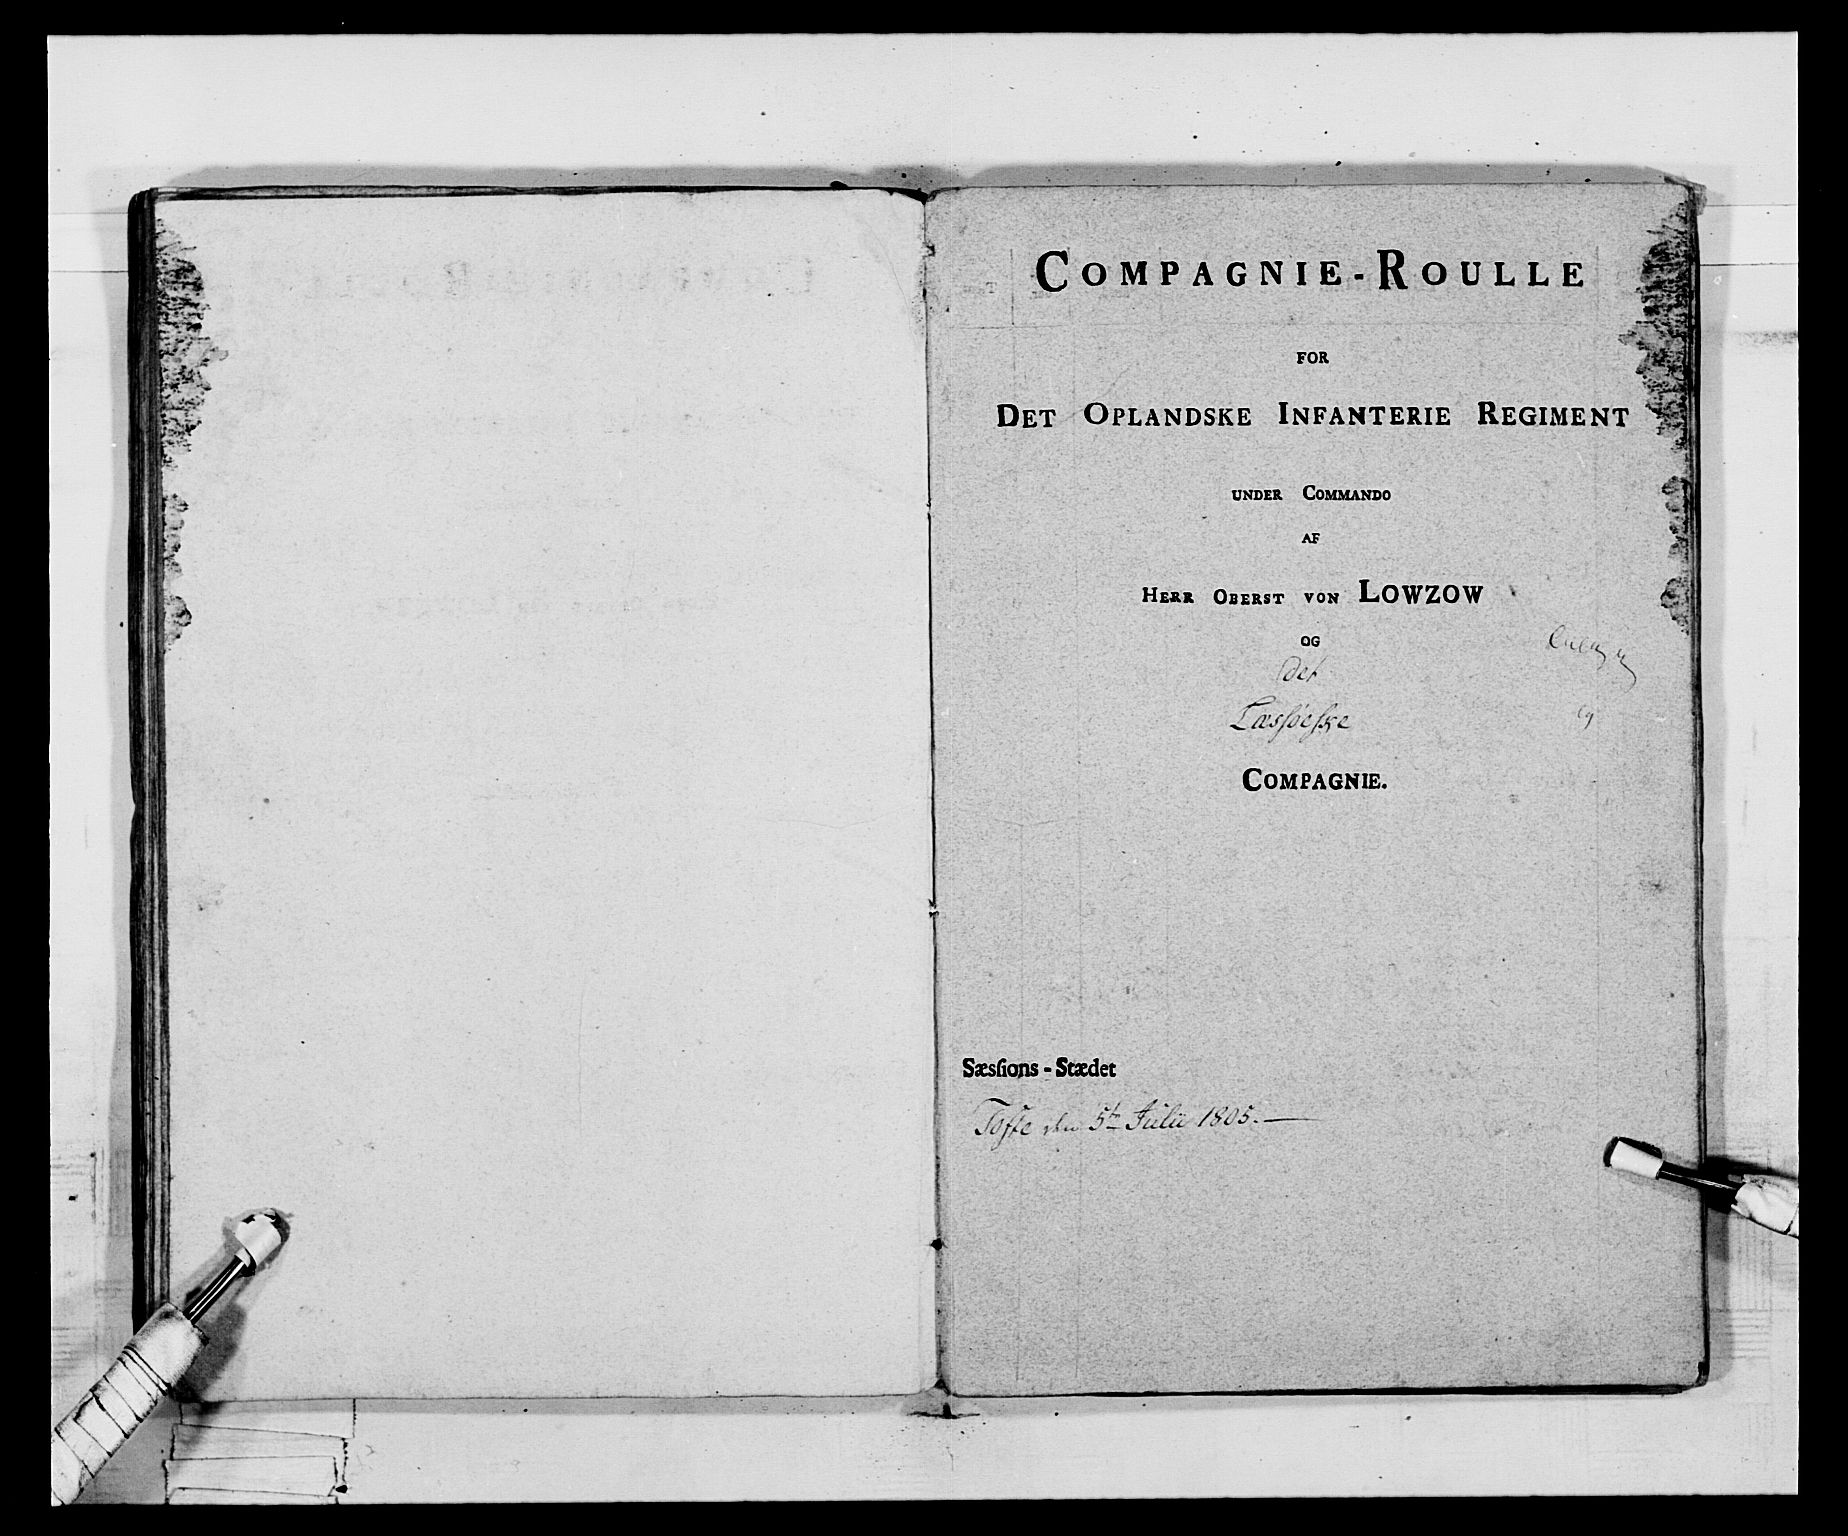 COMPAGNIE-ROULLE
FOR
DET OPLANDSKE INFANTERIE REGIMENT
UNDER COMMANDO
AF
HERR OBERST VON LOWZOW
OG
det
Læsøeske
COMPAGNIE.
Sæsſions - Stædet
Tofte den 5te Julii 1805.